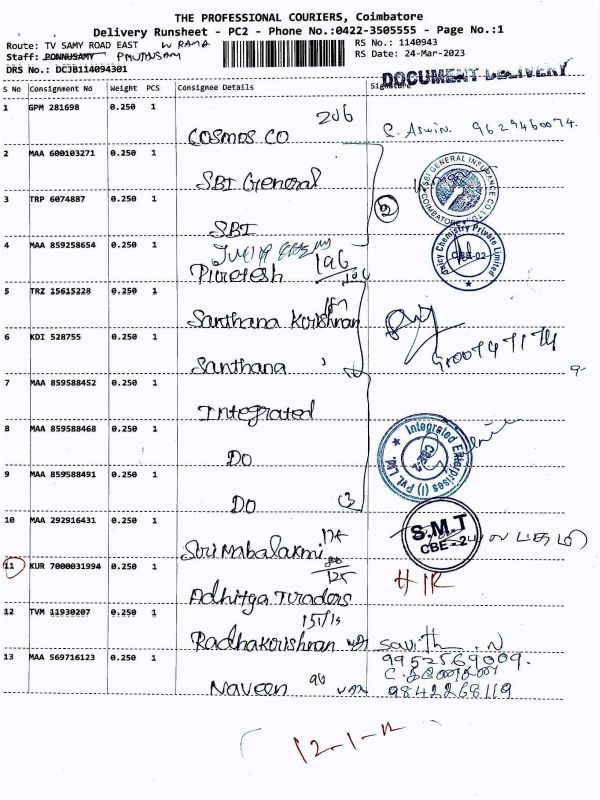 THE PROFESSIONAL COURIERS, Coimbatore
Delivery Runsheet - PC2 - Phone No.:0422-3505555 - Page No.:1
Route: TV SAMY ROAD EAST W RAMA RS No.: 1140943
Staff: PONNUSAMY RS Date: 24-Mar-2023
DRS No.: DCJB114094301 DOCUMENT DELIVERY
S No Consignment No Weight PCS Consignee Details Signature
1 GPM 281698 0.250 1 206
COSMOS CO S. Aswin. 9629460074
2 MAA 600103271 0.250 1
SBI General SBI GENERAL INSURANCE CO LTD COIMBATORE
3 TRP 6074887 0.250 1
SBI
4 MAA 859258654 0.250 1 196
Chemistry Private Limited
5 TRZ 15615228 0.250 1
Santhana Korishnan
6 KDI 528755 0.250 1
Santhana
7 MAA 859588452 0.250 1
Integrated
8 MAA 859588468 0.250 1
DO Integrated Enterprises (I) Pvt. Ltd
9 MAA 859588491 0.250 1
DO 3
10 MAA 292916431 0.250 1 S.M.T
CBE-2
Sori Mahalaxmi
11 KUR 7000031994 0.250 1 125
Adhitya Toraders
12 TVM 11930207 0.250 1 151/15
Radhakorishnan Savith. N
13 MAA 569716123 0.250 1 9952569009.
Naveen 96 9842268119
12-1-12